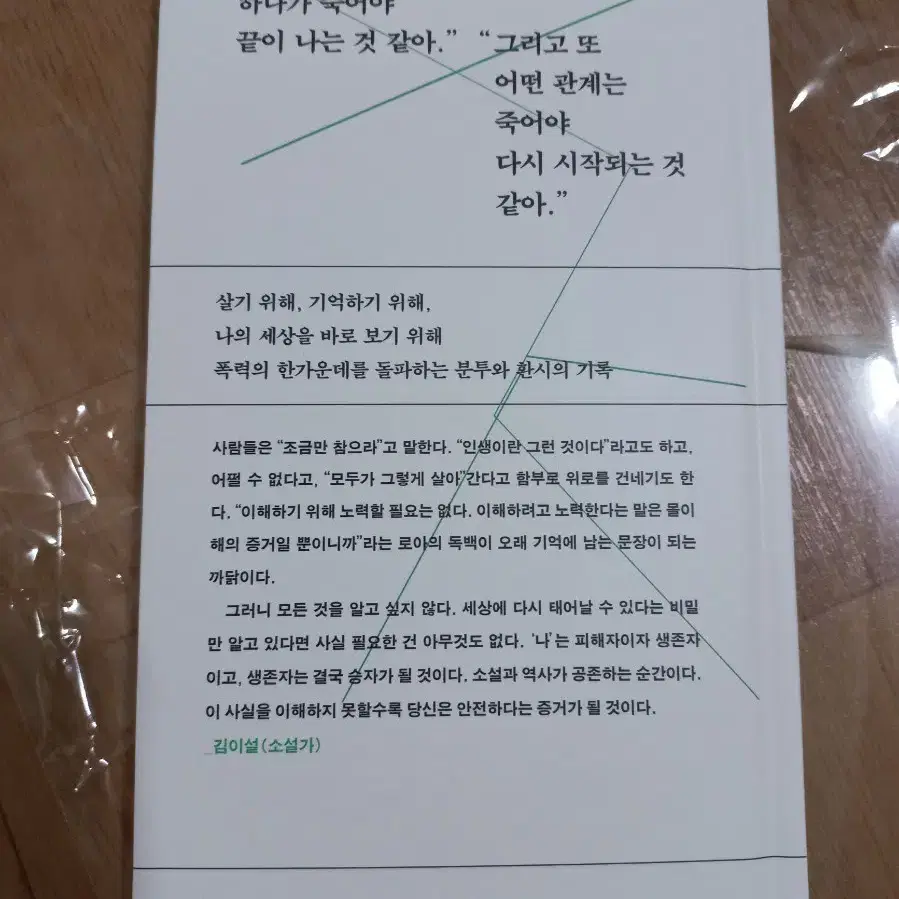 하나가 죽어야
끝이 나는 것 같아.”
“그리고 또
어떤 관계는
죽어야
다시 시작되는 것
같아.”
살기 위해, 기억하기 위해,
나의 세상을 바로 보기 위해
폭력의 한가운데를 돌파하는 분투와 환시의 기록
사람들은 “조금만 참으라”고 말한다. “인생이란 그런 것이다”라고도 하고,
어쩔 수 없다고, “모두가 그렇게 살아”간다고 함부로 위로를 건네기도 한
다. “이해하기 위해 노력할 필요는 없다. 이해하려고 노력한다는 말은 몰이
해의 증거일 뿐이니까”라는 로아의 독백이 오래 기억에 남는 문장이 되는
까닭이다.
그러니 모든 것을 알고 싶지 않다. 세상에 다시 태어날 수 있다는 비밀
만 알고 있다면 사실 필요한 건 아무것도 없다. ‘나’는 피해자이자 생존자
이고, 생존자는 결국 승자가 될 것이다. 소설과 역사가 공존하는 순간이다.
이 사실을 이해하지 못할수록 당신은 안전하다는 증거가 될 것이다.
_김이설(소설가)